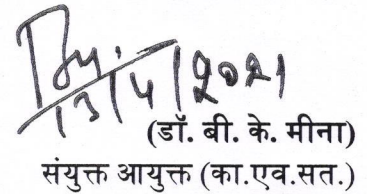 13/4/2021
(डॉ. बी. के. मीना)
संयुक्त आयुक्त (का.एव.सत.)